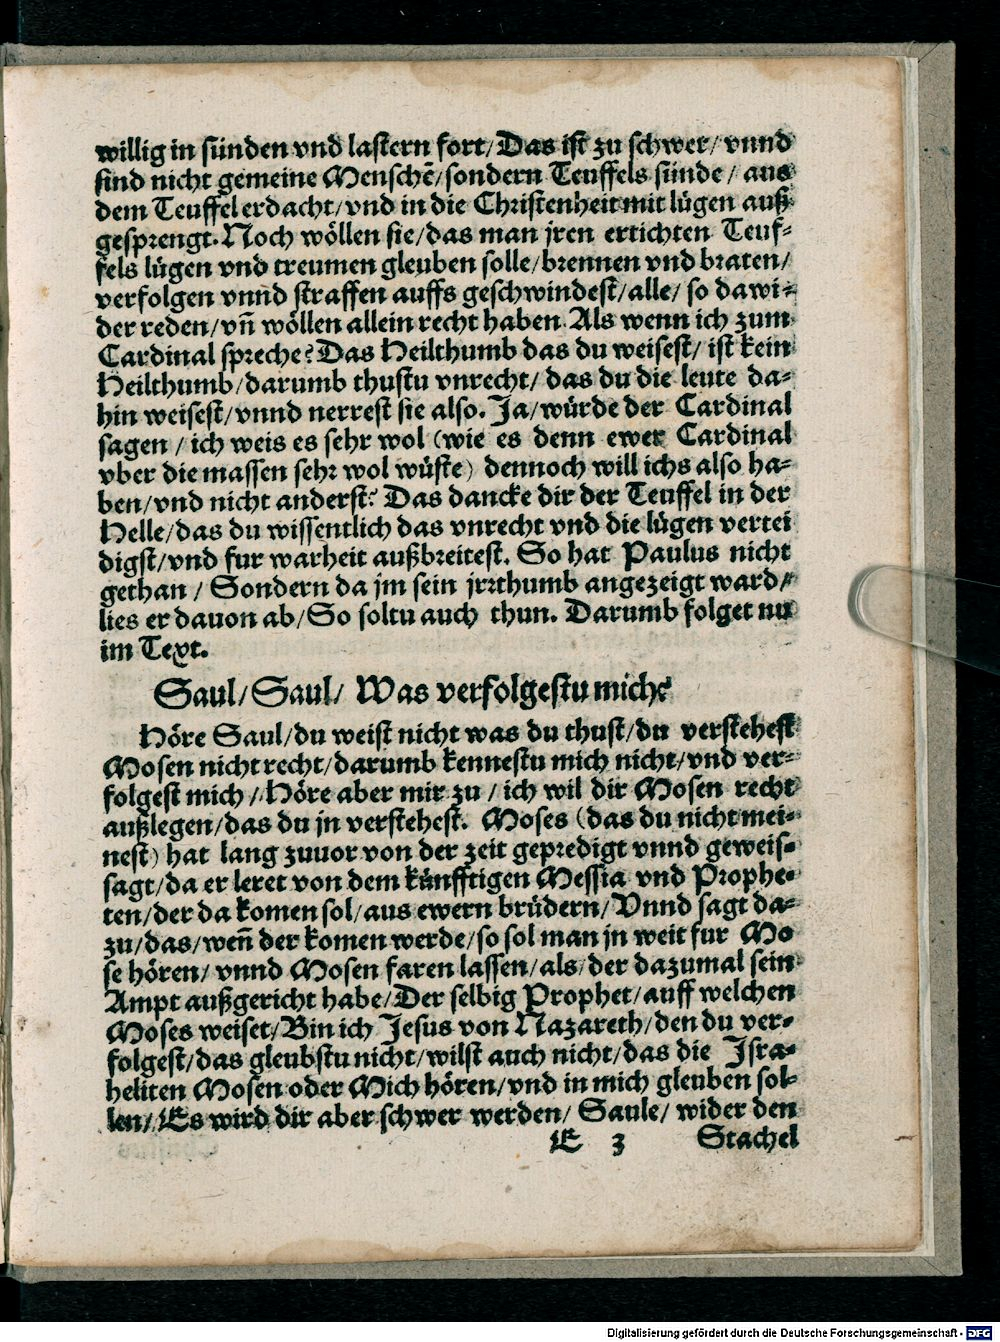 willig in sünden vnd lastern fort/ Das ist zu schwer/ vnnd
sind nicht gemeine Menschē/ sondern Teuffels sünde/ aus
dem Teuffel erdacht/ vnd in die Christenheit mit lügen auß
gesprengt. Noch wöllen sie/ das man jren ertichten Teuf-
fels lügen vnd treumen gleuben solle/ brennen vnd braten/
verfolgen vnnd straffen auffs geschwindest/ alle/ so dawi-
der reden/ vn̄ wöllen allein recht haben. Als wenn ich zum
Cardinal spreche? Das Heilthumb das du weisest/ ist kein
Heilthumb/ darumb thustu vnrecht/ das du die leute da-
hin weisest/ vnnd nerrest sie also. Ja/ würde der Cardinal
sagen/ ich weis es sehr wol (wie es denn ewer Cardinal
vber die massen sehr wol wüste) dennoch will ichs also ha-
ben/ vnd nicht anderst? Das dancke dir der Teuffel in der
Helle/ das du wissentlich das vnrecht vnd die lügen vertei
digst/ vnd fur warheit außbreitest. So hat Paulus nicht
gethan/ Sondern da jm sein jrrthumb angezeigt ward/
lies er dauon ab/ So soltu auch thun. Darumb folget nu
im Text.
Saul/ Saul/ Was verfolgestu mich?
Höre Saul/ du weist nicht was du thust/ du verstehest
Mosen nicht recht/ darumb kennestu mich nicht/ vnd ver-
folgest mich/ Höre aber mir zu/ ich wil dir Mosen recht
außlegen/ das du jn verstehest. Moses (das du nicht mei-
nest) hat lang zuuor von der zeit gepredigt vnnd geweis-
sagt/ da er leret von dem künfftigen Messia vnd Prophe-
ten/ der da komen sol/ aus ewern brüdern/ Vnnd sagt da-
zu/ das/ wen̄ der komen werde/ so sol man jn weit fur Mo
se hören/ vnnd Mosen faren lassen/ als/ der dazumal sein
Ampt außgericht habe/ Der selbig Prophet/ auff welchen
Moses weiset/ Bin ich Jesus von Nazareth/ den du ver-
folgest/ das gleubstu nicht/ wilst auch nicht/ das die Isra-
heliten Mosen oder Mich hören/ vnd in mich gleuben sol-
len/ Es wird dir aber schwer werden/ Saule/ wider den
E 3 Stachel
Digitalisierung gefördert durch die Deutsche Forschungsgemeinschaft - DFG